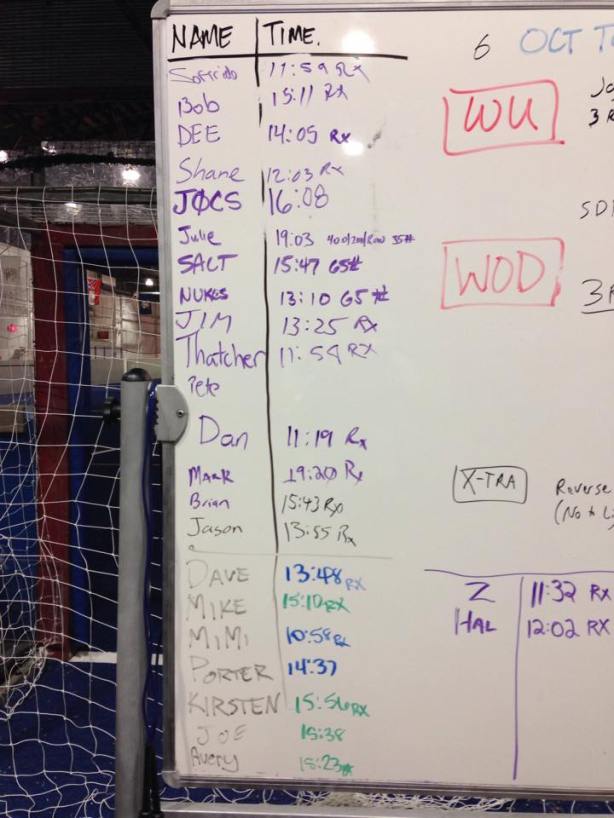 NAME TIME.
11:59 Rx
Bob 15:11 Rx
DEE 14:05 Rx
Shane 12:03 Rx
JØCS 16:08
Julie 19:03 400/200/Row 35#
SALT 15:47 65#
NUKES 13:10 65#
JIM 13:25 Rx
Thatcher 11:59 RX
Pete
Dan 11:19 Rx
MARK 19:20 Rx
Brian 15:43 Rx
Jason 13:55 Rx
DAVE 13:48 RX
MIKE 15:10 RX
MiMi 10:58 Rx
PORTER 14:37
KIRSTEN 15:56 RX
JOE 15:38
Avery 15:23
6 OCT
WU
3
WOD
3
X-TRA
Reverse
(No
Z 11:32 RX
HAL 12:02 RX